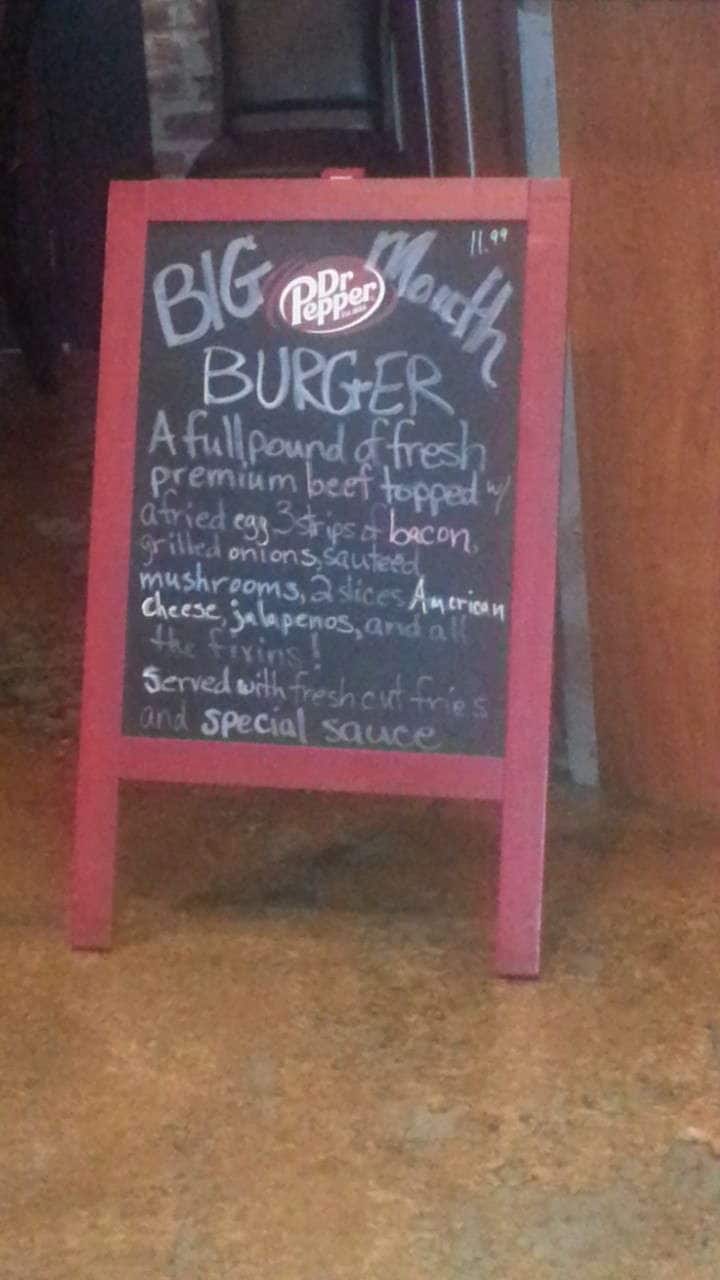 11.99
BIG Mouth
Dr
Pepper
BURGER
A full pound of fresh
premium beef topped w/
a fried egg 3 strips of bacon,
grilled onions, sauteed
mushrooms, 2 slices American
cheese, jalapenos, and all
the fixins!
Served with fresh cut fries
and special sauce